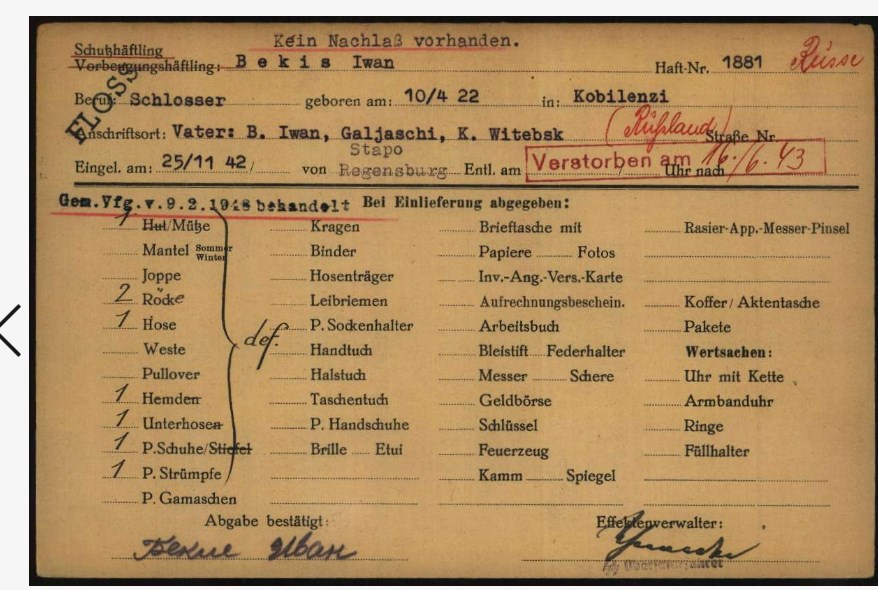 Kein Nachlaß vorhanden.
Schutzhäftling
Vorbeugungshäftling: Bekis Iwan Haft-Nr. 1881 Russe
FLOSS
Beruf: Schlosser geboren am: 10/4 22 in: Kobilenzi
Anschriftsort: Vater: B. Iwan, Galjaschi, K. Witebsk (Rußland) Straße Nr.
Eingel. am: 25/11 42/ von Stapo Regensburg Entl. am Uhr nach
Verstorben am 16./6. 43
Gem.Vfg.v.9.2.1943 behandelt Bei Einlieferung abgegeben:
1 Hut/Mütze Kragen Brieftasche mit Rasier-App.-Messer-Pinsel
Mantel Sommer Winter Binder Papiere Fotos
Joppe Hosenträger Inv.-Ang.-Vers.-Karte
2 Röcke Leibriemen Aufrechnungsbeschein. Koffer/Aktentasche
1 Hose def. P. Sockenhalter Arbeitsbuch Pakete
Weste Handtuch Bleistift Federhalter Wertsachen:
Pullover Halstuch Messer Schere Uhr mit Kette
1 Hemden Taschentuch Geldbörse Armbanduhr
1 Unterhosen P. Handschuhe Schlüssel Ringe
1 P.Schuhe/Stiefel Brille Etui Feuerzeug Füllhalter
1 P. Strümpfe Kamm Spiegel
P. Gamaschen
Abgabe bestätigt: Effektenverwalter: